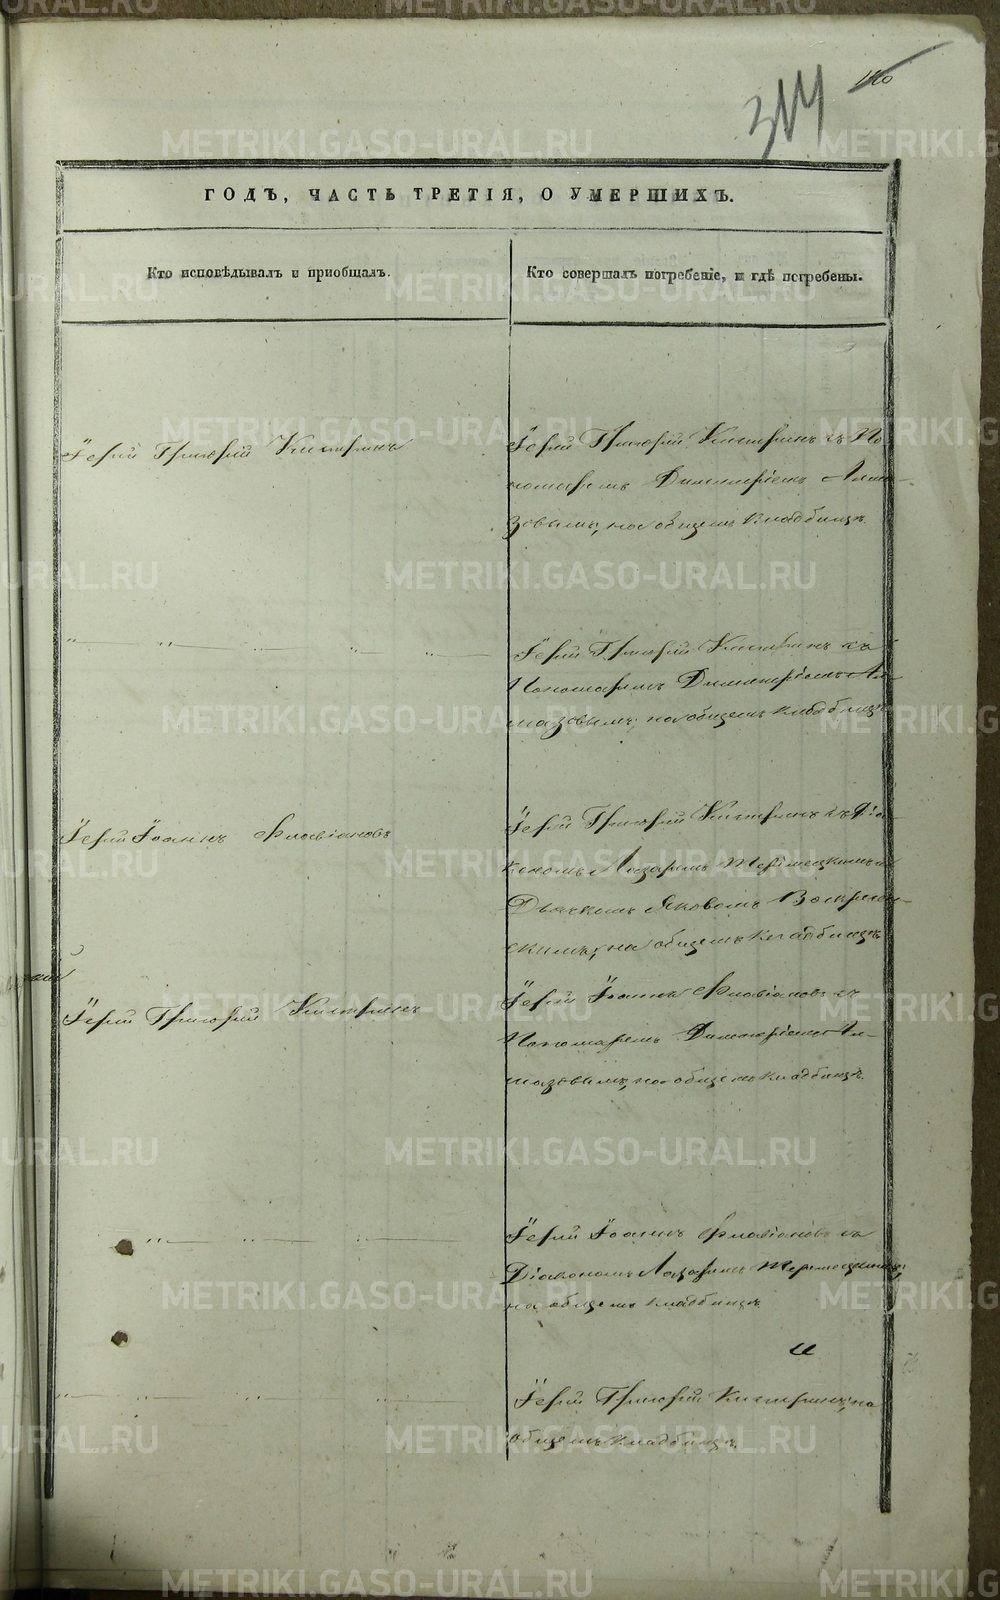 314 140
ГОДЪ, ЧАСТЬ ТРЕТІЯ, О УМЕРШИХЪ.
Кто исповѣдывалъ и пріобщалъ.
Кто совершалъ погребеніе, и гдѣ погребены.
Іерей Григорій
Іерей Григорій съ По-
номаремъ Димитріемъ Алма-
зовымъ, на общемъ кладбищѣ.
Іерей Григорій съ
Пономаремъ Димитріемъ Ал-
мазовымъ, на общемъ кладбищѣ
Іерей Іоаннъ Флавіановъ
Іерей Григорій съ Діа-
кономъ Лазаремъ и
Дьячкомъ Яковомъ Воскресен-
скимъ, на общемъ кладбищѣ
Іерей Григорій
Іерей Іоаннъ Флавіановъ съ
Пономаремъ Димитріемъ Ал-
мазовымъ, на общемъ кладбищѣ.
Іерей Іоаннъ Флавіановъ съ
Діакономъ Лазаремъ
на общемъ кладбищѣ
Іерей Григорій на
общемъ кладбищѣ.
METRIKI.GASO-URAL.RU